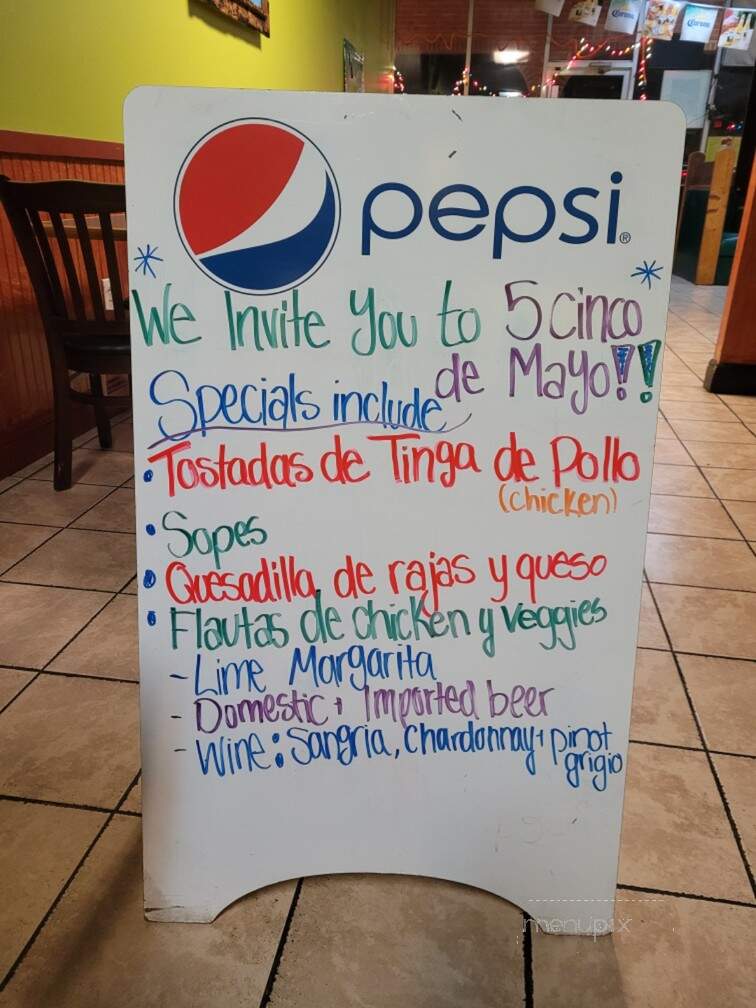 pepsi®
We Invite You to 5 cinco
de Mayo!!!
Specials include
• Tostadas de Tinga de Pollo
(chicken)
• Sopes
• Quesadilla de rajas y queso
• Flautas de chicken y veggies
- Lime Margarita
- Domestic + Imported beer
- Wine: Sangria, Chardonnay + pinot
grigio
menupix
Corona
Corona